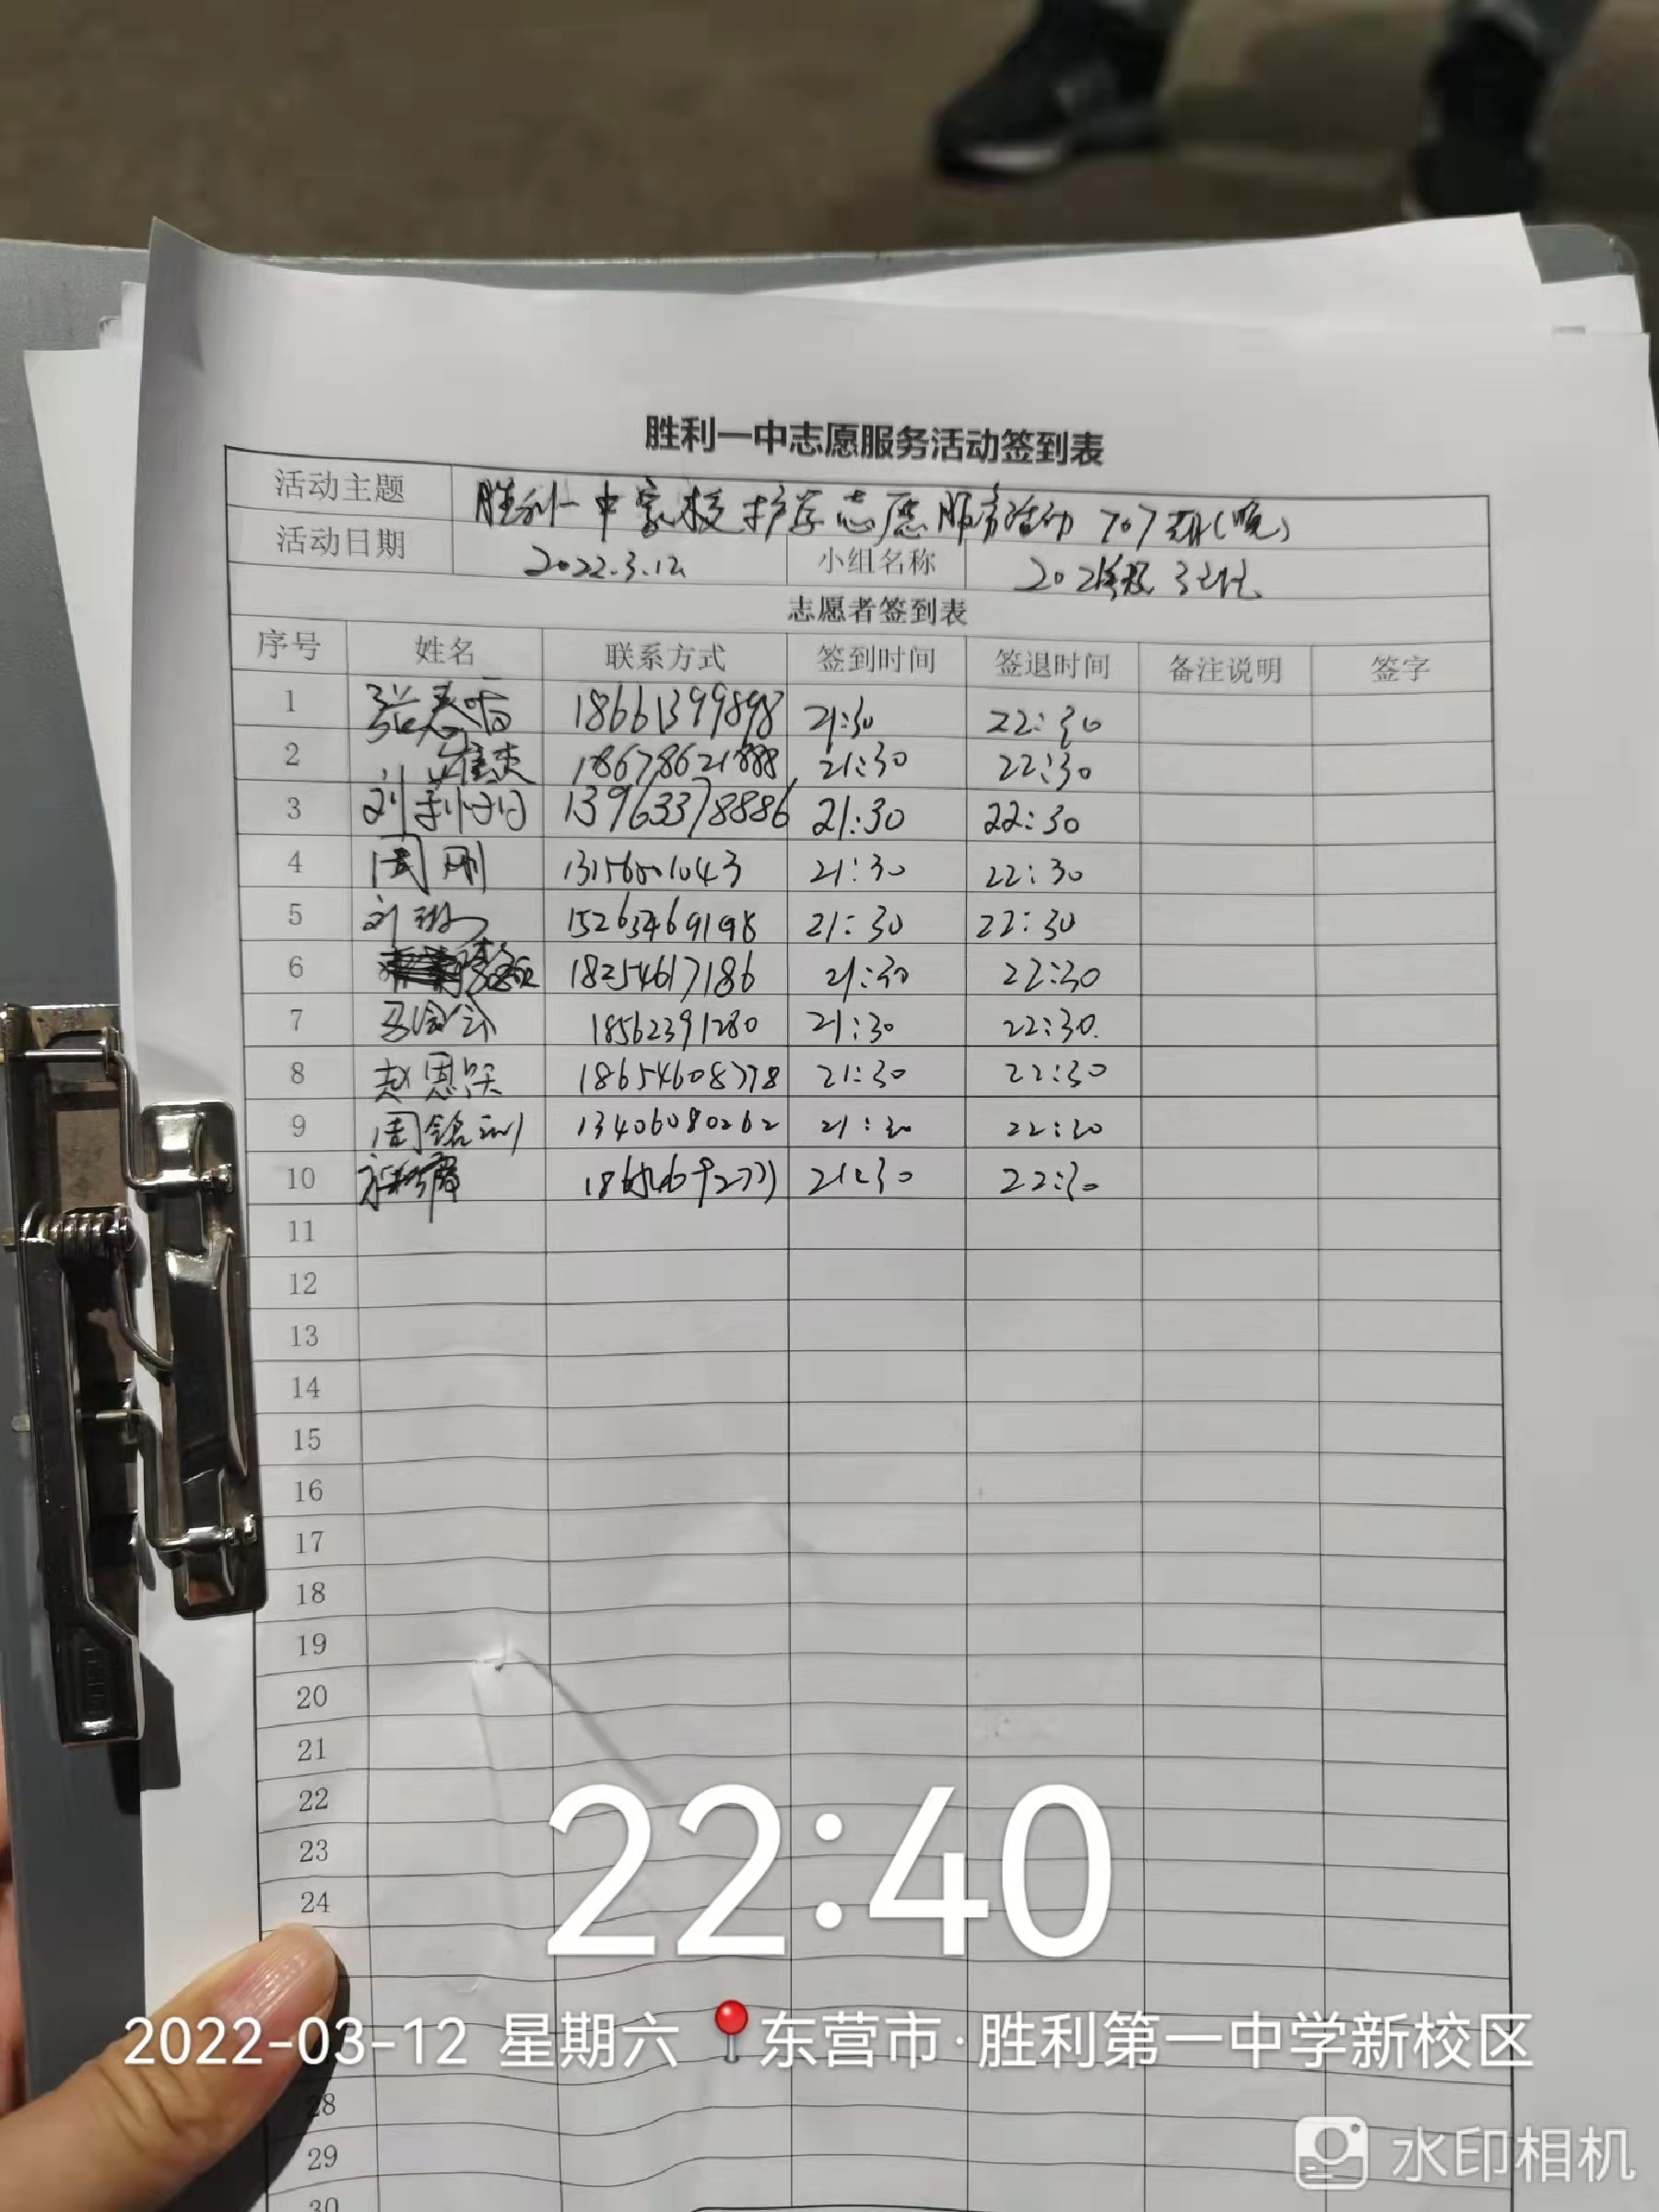 胜利一中志愿服务活动签到表
活动主题 胜利一中家校护学志愿服务活动 707班(晚)
活动日期 2022.3.12 小组名称 2021级
志愿者签到表
序号 姓名 联系方式 签到时间 签退时间 备注说明 签字
1 张春香 18661399898 21:30 22:30
2 18678621888 21:30 22:30
3 13963378886 21:30 22:30
4 周刚 21:30 22:30
5 刘琳 15263469198 21:30 22:30
6 18254617186 21:30 22:30
7 18562391280 21:30 22:30.
8 18654608778 21:30 22:30
9 周铭训 13406080262 21:30 22:30
10 21:30 22:30
11
12
13
14
15
16
17
18
19
20
21
22
23
24
28
29
30
22:40
2022-03-12 星期六 东营市·胜利第一中学新校区
水印相机